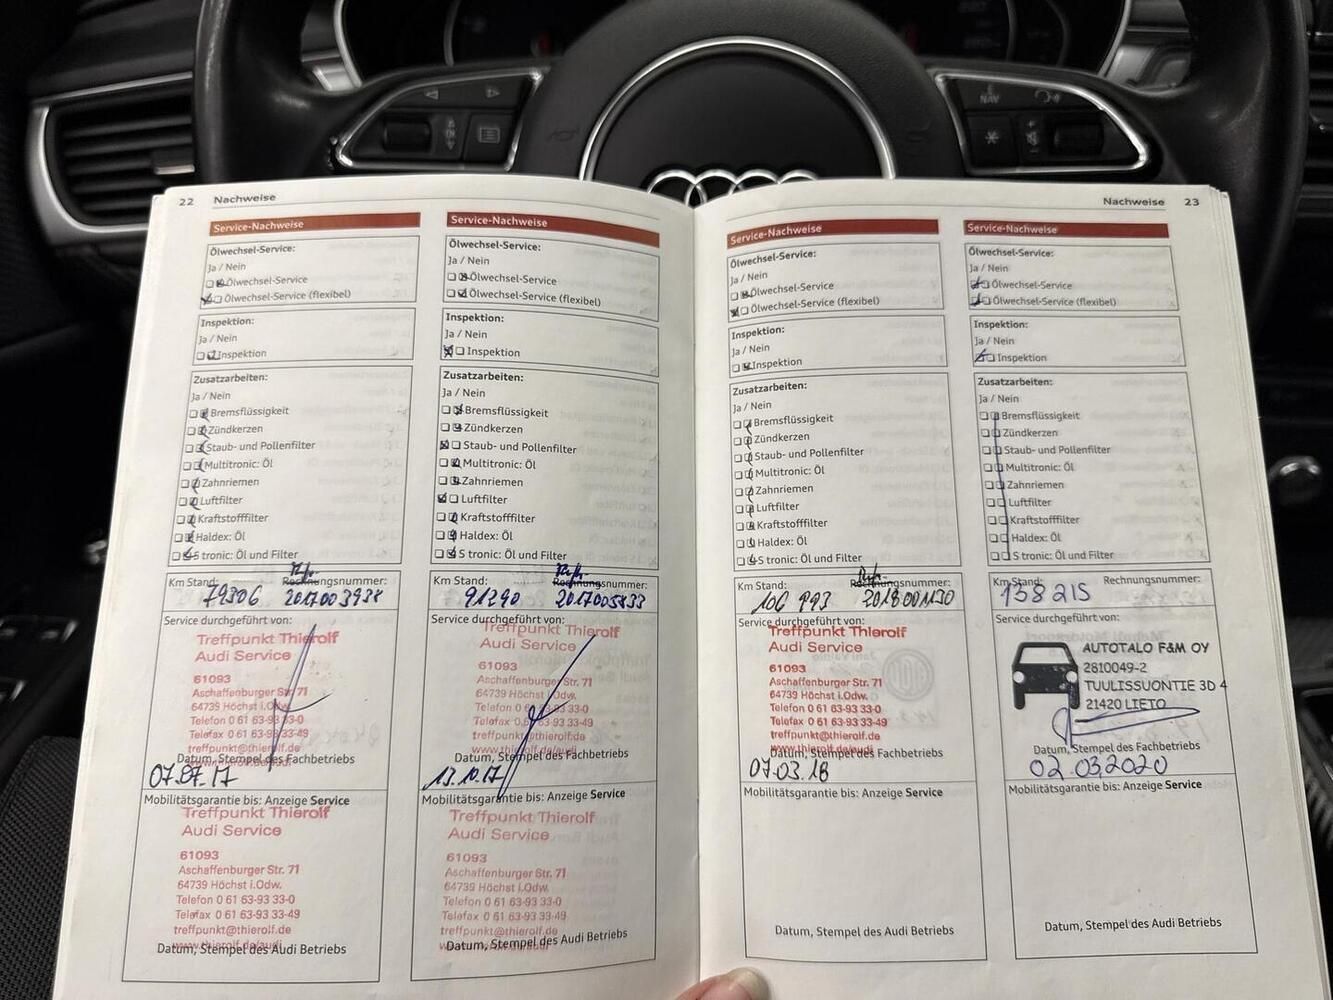 NAV
22 Nachweise
Service-Nachweise
Ölwechsel-Service:
Ja / Nein
Ölwechsel-Service
Ölwechsel-Service (flexibel)
Inspektion:
Ja / Nein
Inspektion
Zusatzarbeiten:
Ja / Nein
Bremsflüssigkeit
Zündkerzen
Staub- und Pollenfilter
Multitronic: Öl
Zahnriemen
Luftfilter
Kraftstofffilter
Haldex: Öl
S tronic: Öl und Filter
Km Stand: Rechnungsnummer:
79306 2017003938
Service durchgeführt von:
Treffpunkt Thierolf
Audi Service
61093
Aschaffenburger Str. 71
64739 Höchst i.Odw.
Telefon 0 61 63-93 33-0
Telefax 0 61 63-93 33-49
treffpunkt@thierolf.de
Datum, Stempel des Fachbetriebs
07.07.17
Mobilitätsgarantie bis: Anzeige Service
Treffpunkt Thierolf
Audi Service
61093
Aschaffenburger Str. 71
64739 Höchst i.Odw.
Telefon 0 61 63-93 33-0
Telefax 0 61 63-93 33-49
treffpunkt@thierolf.de
www.thierolf.de/audi
Datum, Stempel des Audi Betriebs
Service-Nachweise
Ölwechsel-Service:
Ja / Nein
Ölwechsel-Service
Ölwechsel-Service (flexibel)
Inspektion:
Ja / Nein
Inspektion
Zusatzarbeiten:
Ja / Nein
Bremsflüssigkeit
Zündkerzen
Staub- und Pollenfilter
Multitronic: Öl
Zahnriemen
Luftfilter
Kraftstofffilter
Haldex: Öl
S tronic: Öl und Filter
Km Stand: Rechnungsnummer:
91290 2017005833
Service durchgeführt von:
Treffpunkt Thierolf
Audi Service
61093
Aschaffenburger Str. 71
64739 Höchst i.Odw.
Telefon 0 61 63-93 33-0
Telefax 0 61 63-93 33-49
treffpunkt@thierolf.de
www.thierolf.de/audi
Datum, Stempel des Fachbetriebs
13.10.17
Mobilitätsgarantie bis: Anzeige Service
Treffpunkt Thierolf
Audi Service
61093
Aschaffenburger Str. 71
64739 Höchst i.Odw.
Telefon 0 61 63-93 33-0
Telefax 0 61 63-93 33-49
treffpunkt@thierolf.de
Datum, Stempel des Audi Betriebs
Nachweise 23
Service-Nachweise
Ölwechsel-Service:
Ja / Nein
Ölwechsel-Service
Ölwechsel-Service (flexibel)
Inspektion:
Ja / Nein
Inspektion
Zusatzarbeiten:
Ja / Nein
Bremsflüssigkeit
Zündkerzen
Staub- und Pollenfilter
Multitronic: Öl
Zahnriemen
Luftfilter
Kraftstofffilter
Haldex: Öl
S tronic: Öl und Filter
Km Stand: Rechnungsnummer:
106 993 2018001130
Service durchgeführt von:
Treffpunkt Thierolf
Audi Service
61093
Aschaffenburger Str. 71
64739 Höchst i.Odw.
Telefon 0 61 63-93 33-0
Telefax 0 61 63-93 33-49
treffpunkt@thierolf.de
www.thierolf.de/audi
Datum, Stempel des Fachbetriebs
07.03.18
Mobilitätsgarantie bis: Anzeige Service
Datum, Stempel des Audi Betriebs
Service-Nachweise
Ölwechsel-Service:
Ja / Nein
Ölwechsel-Service
Ölwechsel-Service (flexibel)
Inspektion:
Ja / Nein
Inspektion
Zusatzarbeiten:
Ja / Nein
Bremsflüssigkeit
Zündkerzen
Staub- und Pollenfilter
Multitronic: Öl
Zahnriemen
Luftfilter
Kraftstofffilter
Haldex: Öl
S tronic: Öl und Filter
Km Stand: Rechnungsnummer:
138215
Service durchgeführt von:
AUTOTALO F&M OY
2810049-2
TUULISSUONTIE 3D 4
21420 LIETO
Datum, Stempel des Fachbetriebs
02.03.2020
Mobilitätsgarantie bis: Anzeige Service
Datum, Stempel des Audi Betriebs